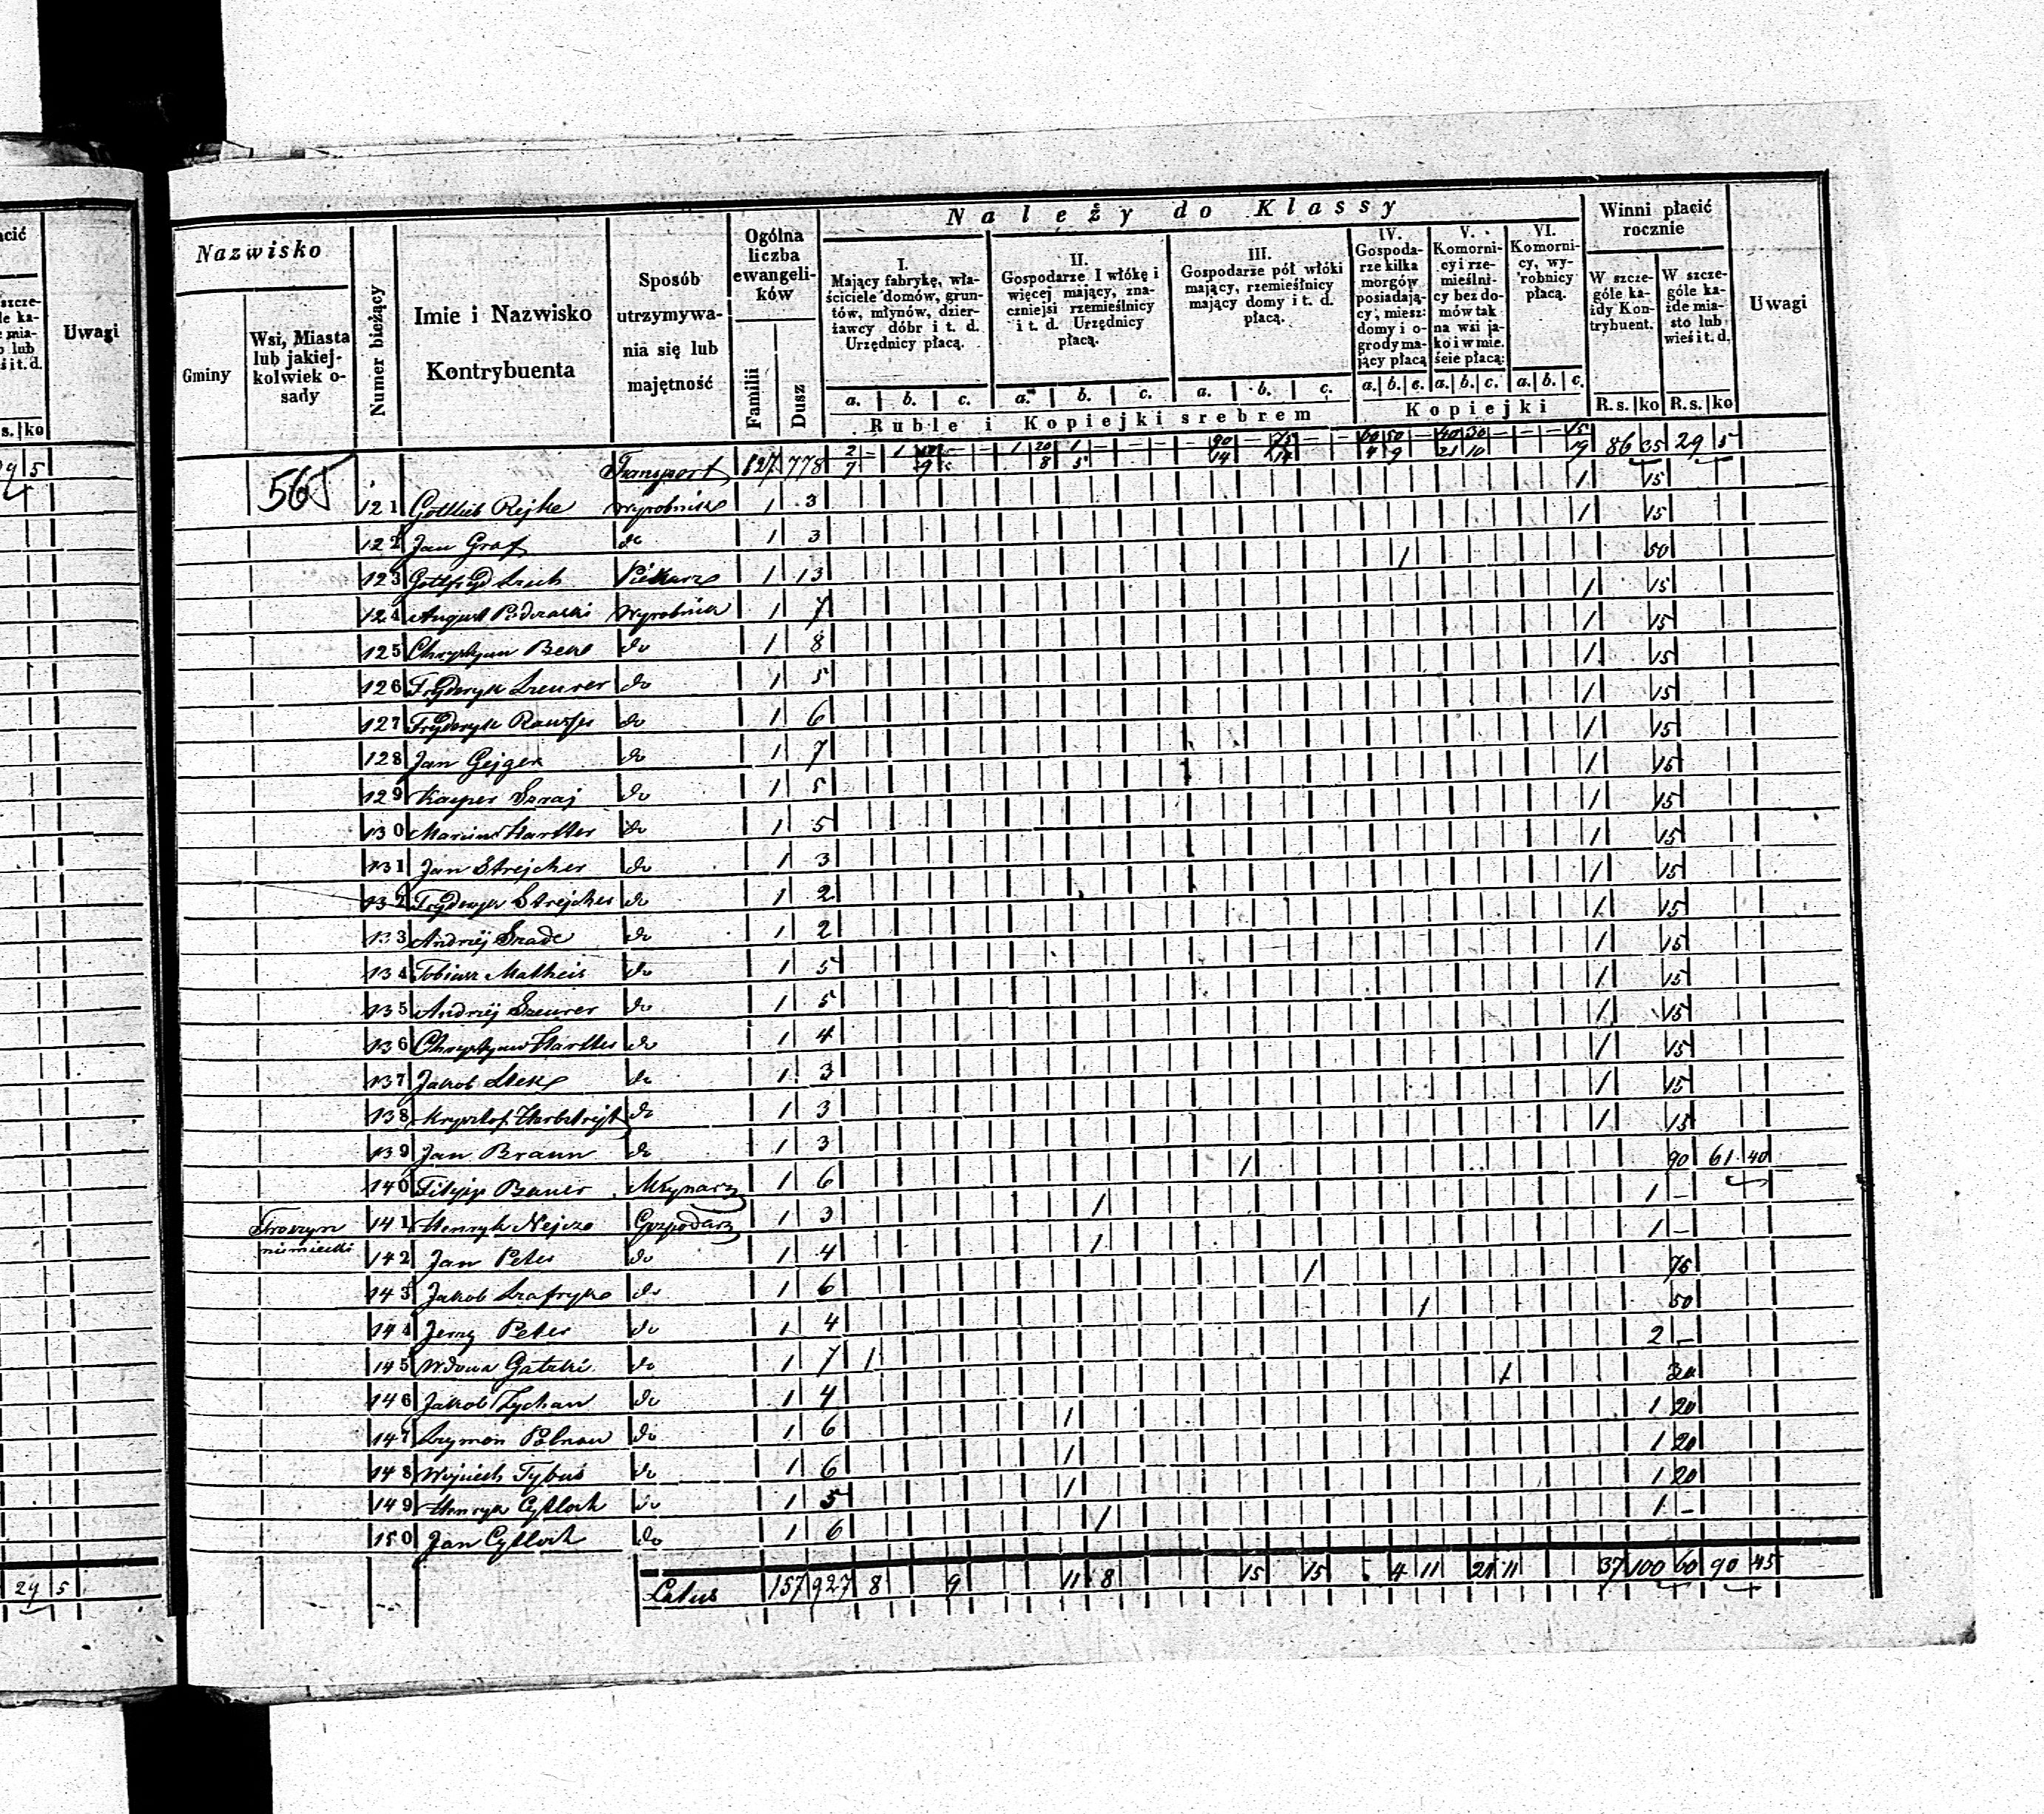 acić
szcze-
le ka-
mia-
o lub
ś i t. d.
Uwagi
s. ko
29 5
24 5
Należy do Klassy
Nazwisko
Gminy
Wsi, Miasta lub jakiej-kolwiek o-sady
Numer bieżący
Imie i Nazwisko Kontrybuenta
Sposób utrzymywa-nia się lub majętność
Ogólna liczba ewangeli-ków
Familii
Dusz
I. Mający fabrykę, wła-ściciele domów, grun-tów, młynów, dzier-żawcy dóbr i t. d. Urzędnicy płacą.
II. Gospodarze I włókę i więcej mający, zna-czniejsi rzemieślnicy i t. d. Urzędnicy płacą.
III. Gospodarze pół włóki mający, rzemieślnicy mający domy i t. d. płacą.
IV. Gospoda-rze kilka morgów posiadają-cy, miesz: domy i o-grody ma-jący płacą
V. Komorni-cy i rze-mieślni-cy bez do-mów tak na wsi ja-ko i w mie. ście płacą:
VI. Komorni-cy, wy-robnicy płacą.
Winni płacić rocznie
W szcze-góle ka-żdy Kon-trybuent.
W szcze-góle ka-żde mia-sto lub wieś i t. d.
Uwagi
a. b. c. a. b. c. a. b. c. a. b. c. a. b. c. a. b. c.
R. s. ko R. s. ko
Ruble i Kopiejki srebrem
Kopiejki
565 Transport 127 778 86 35 29 5
121 Gottlieb Rejke Wyrobnik 1 3 1 15
122 Jan Graf do 1 3 1 15
123 Gottfryd Piekarz 1 13 1 50
124 August Wyrobnik 1 7 1 15
125 Chrystyan do 1 8 1 15
126 Fryderyk Szeurer do 1 5 1 15
127 Fryderyk do 1 6 1 15
128 Jan Gejger do 1 7 1 15
129 Kasper Szraj do 1 5 1 15
130 Marcin Hartter do 1 5 1 15
131 Jan Strejcher do 1 3 1 15
132 Fryderyk Strejcher do 1 2 1 15
133 Andrzéj Szade do 1 2 1 15
134 Tobiasz Matheis do 1 5 1 15
135 Andrzéj Szeurer do 1 5 1 15
136 Chrystyan Hartter do 1 4 1 15
137 Jakob do 1 3 1 15
138 Krysztof Harbstrejt do 1 3 1 15
139 Jan Braun do 1 3 1 15
140 Filipp Bauer Młynarz 1 6 1 90 61 40
Troszyn 141 Henryk Nejcze Gospodarz 1 3 1 1 –
niemiecki 142 Jan Peter do 1 4 1 1 –
143 Jakob Szafryk do 1 6 1 75
144 Jerzy Peter do 1 4 1 50
145 Wdowa Gatzki do 1 7 1 2 –
146 Jakob Zychan do 1 4 1 30
147 Szymon Polnau do 1 6 1 1 20
148 Wojciech Tybus do 1 6 1 1 20
149 Henryk Cytloch do 1 5 1 1 20
150 Jan Cytloch do 1 6 1 1 –
Latus 157 927 8 9 11 8 15 15 4 11 21 11 37 100 60 90 45